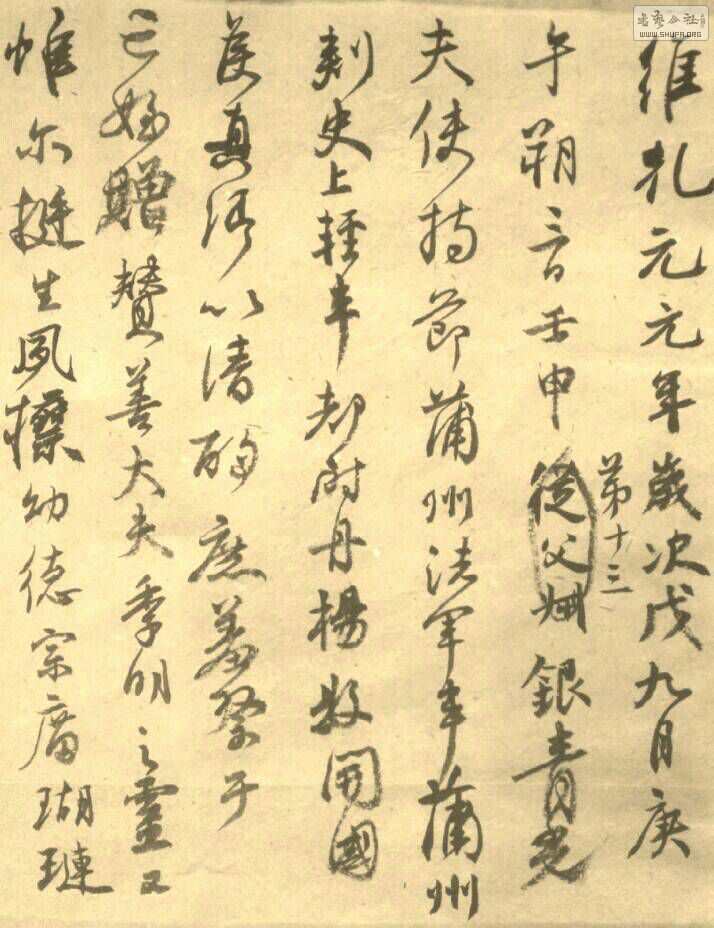 維乾元元年歲次戊九月庚
午朔三日壬申從父叔銀青光
第十三
夫使持節蒲州諸軍事蒲州
刺史上輕車都尉丹楊縣開國
侯真卿以清酌庶羞祭于
亡姪贈贊善大夫季明之靈曰
惟尔挺生夙標幼德宗廟瑚璉
書藝公社
WWW.SHUFA.ORG